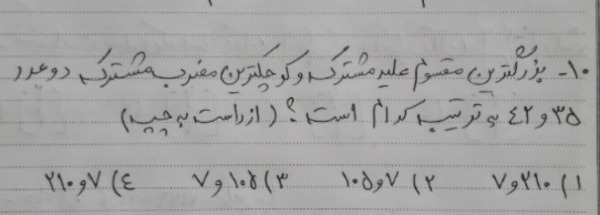 ۱۰- بزرگترین مقسوم علیه مشترک و کوچکترین مضرب مشترک دو عدد
۳۵ و ۴۲ به ترتیب کدام است؟ (از راست به چپ)
۱) ۲۱۰ و ۷ ۲) ۷ و ۱۰۵ ۳) ۱۰۵ و ۷ ۴) ۷ و ۲۱۰